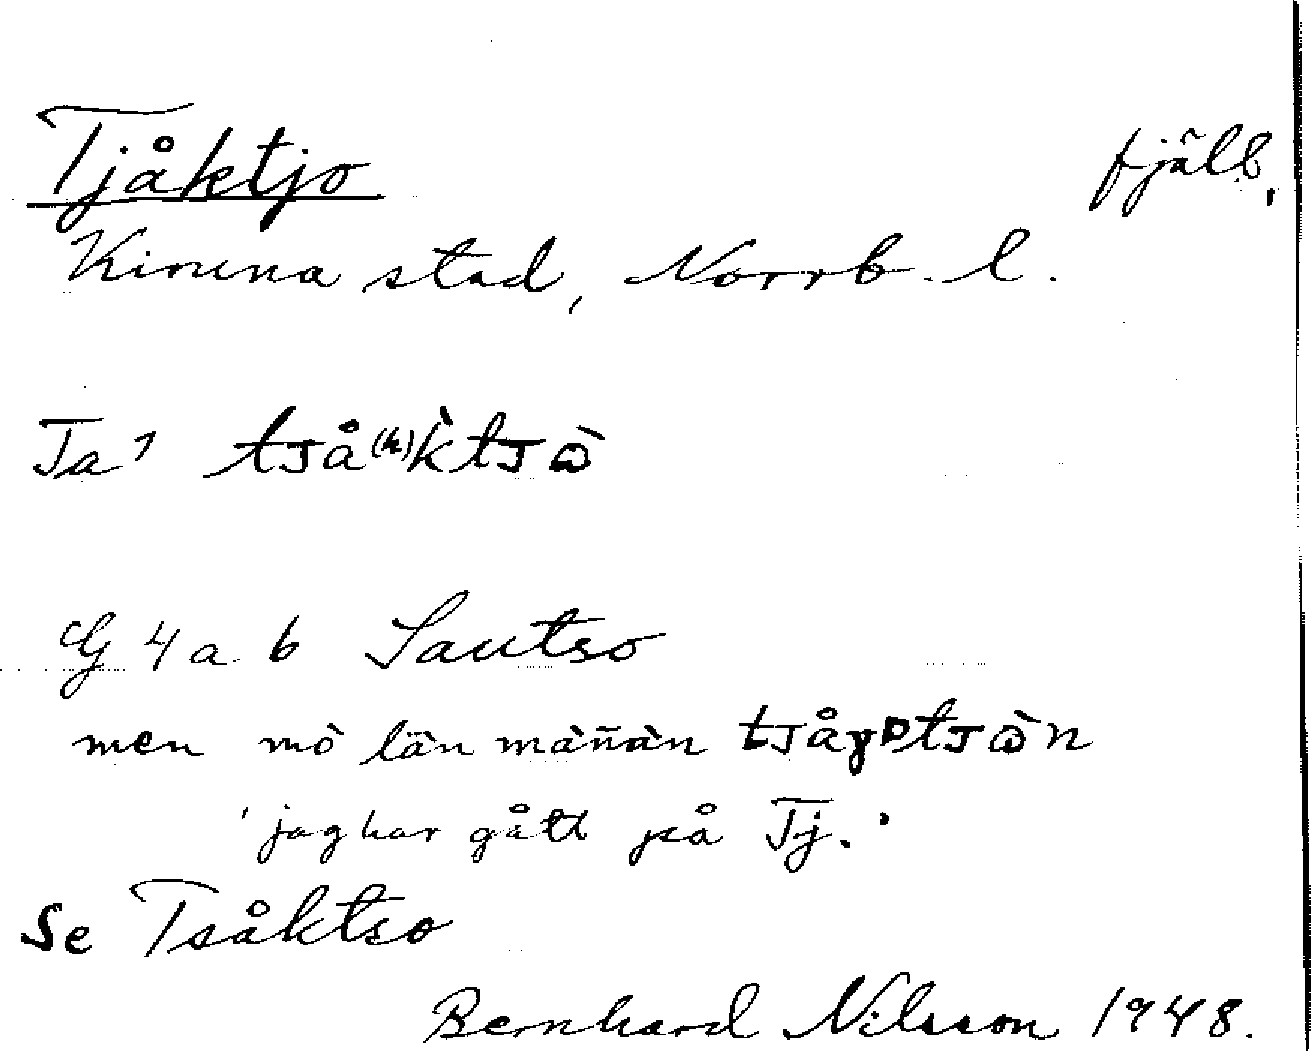 Tjåktjo fjäll,
Kiruna stad, Norrb. l.
Ta 1 tjå(h)k̀tjò̱
G 4 a b Sautso
men mò län màñàn tjåɣᴅtjò̱n
'jag har gått på Tj.'
Se Tsåktso
Bernhard Nilsson 1948.